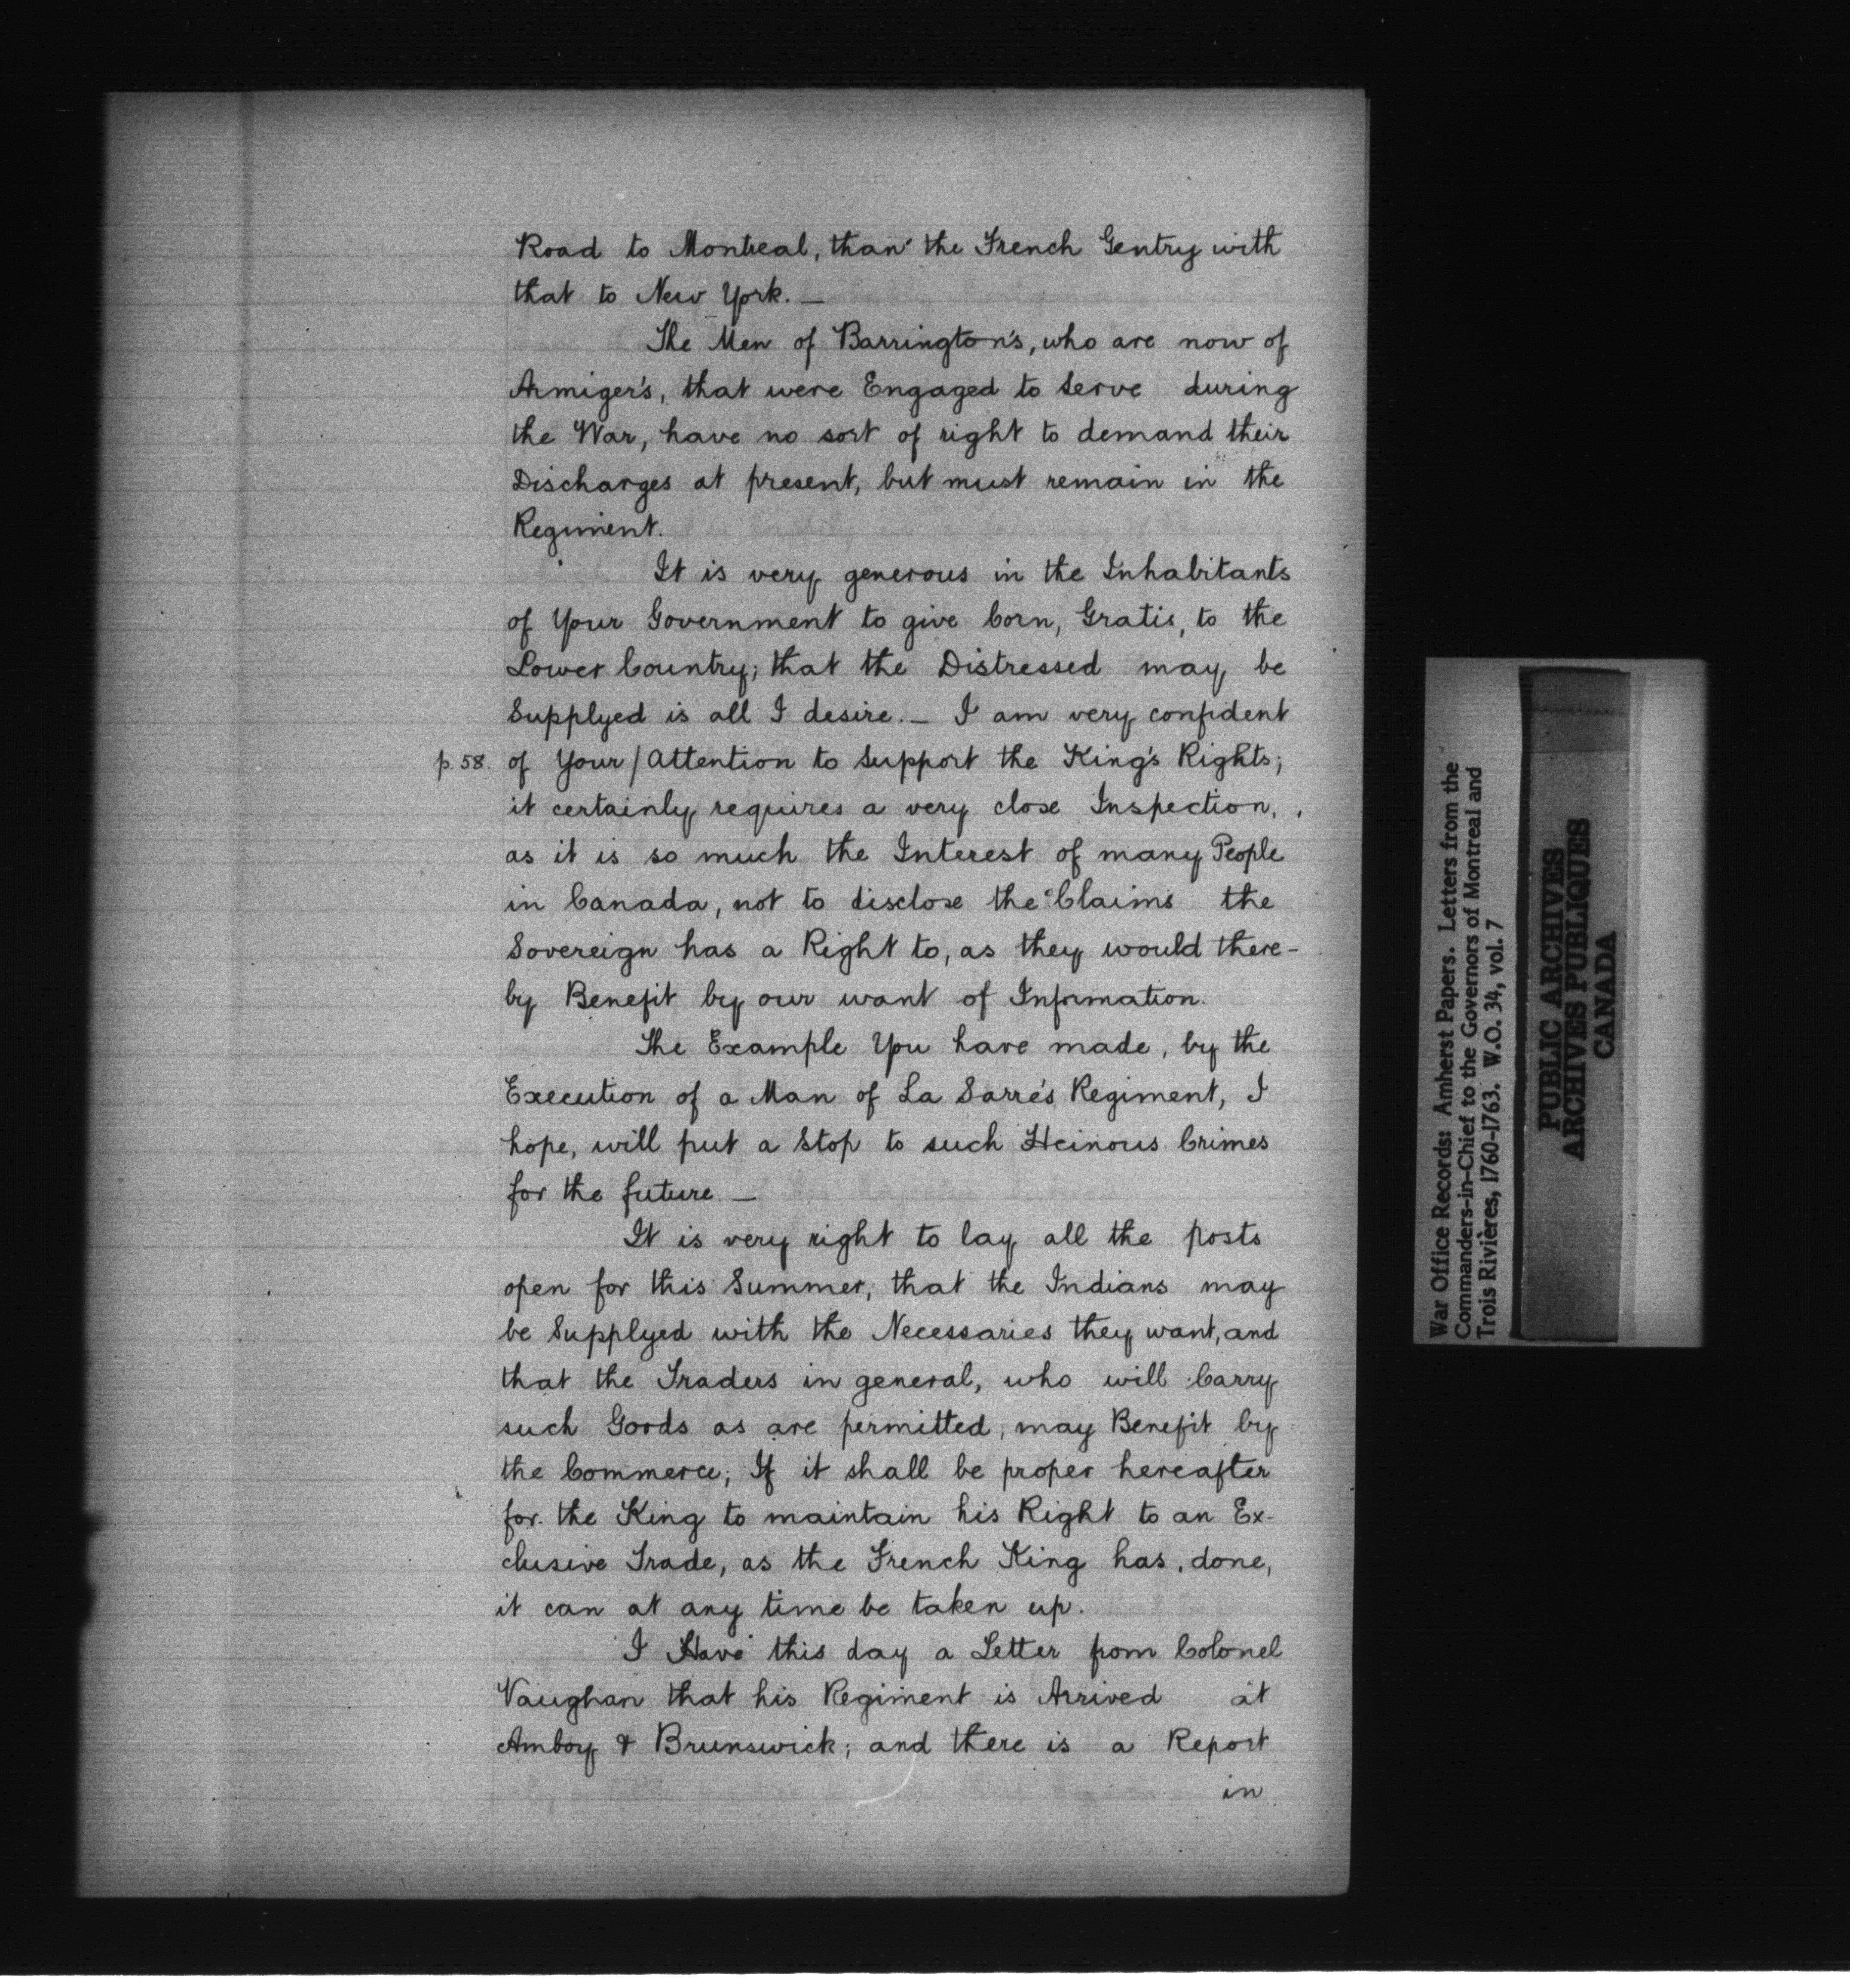 Road to Montreal, than the French Gentry with
that to New York. —
The Men of Barrington's, who are now of
Armiger's, that were Engaged to Serve during
the War, have no sort of right to demand their
Discharges at present, but must remain in the
Regiment.
It is very generous in the Inhabitants
of Your Government to give Corn, Gratis, to the
Lower Country; that the Distressed may be
Supplyed is all I desire. — I am very confident
p. 58. of Your / Attention to Support the King's Rights;
it certainly requires a very close Inspection,
as it is so much the Interest of many People
in Canada, not to disclose the Claims the
Sovereign has a Right to, as they would there-
by Benefit by our want of Information.
The Example You have made, by the
Execution of a Man of La Sarre's Regiment, I
hope, will put a Stop to such Heinous Crimes
for the future —
It is very right to lay all the posts
open for this Summer, that the Indians may
be Supplyed with the Necessaries they want, and
that the Traders in general, who will Carry
such Goods as are permitted, may Benefit by
the Commerce; If it shall be proper hereafter
for the King to maintain his Right to an Ex-
clusive Trade, as the French King has done,
it can at any time be taken up.
I Have this day a Letter from Colonel
Vaughan that his Regiment is Arrived at
Amboy & Brunswick; and there is a Report
in
War Office Records: Amherst Papers. Letters from the
Commanders-in-Chief to the Governors of Montreal and
Trois Rivières, 1760-1763. W.O. 34, vol. 7
PUBLIC ARCHIVES
ARCHIVES PUBLIQUES
CANADA